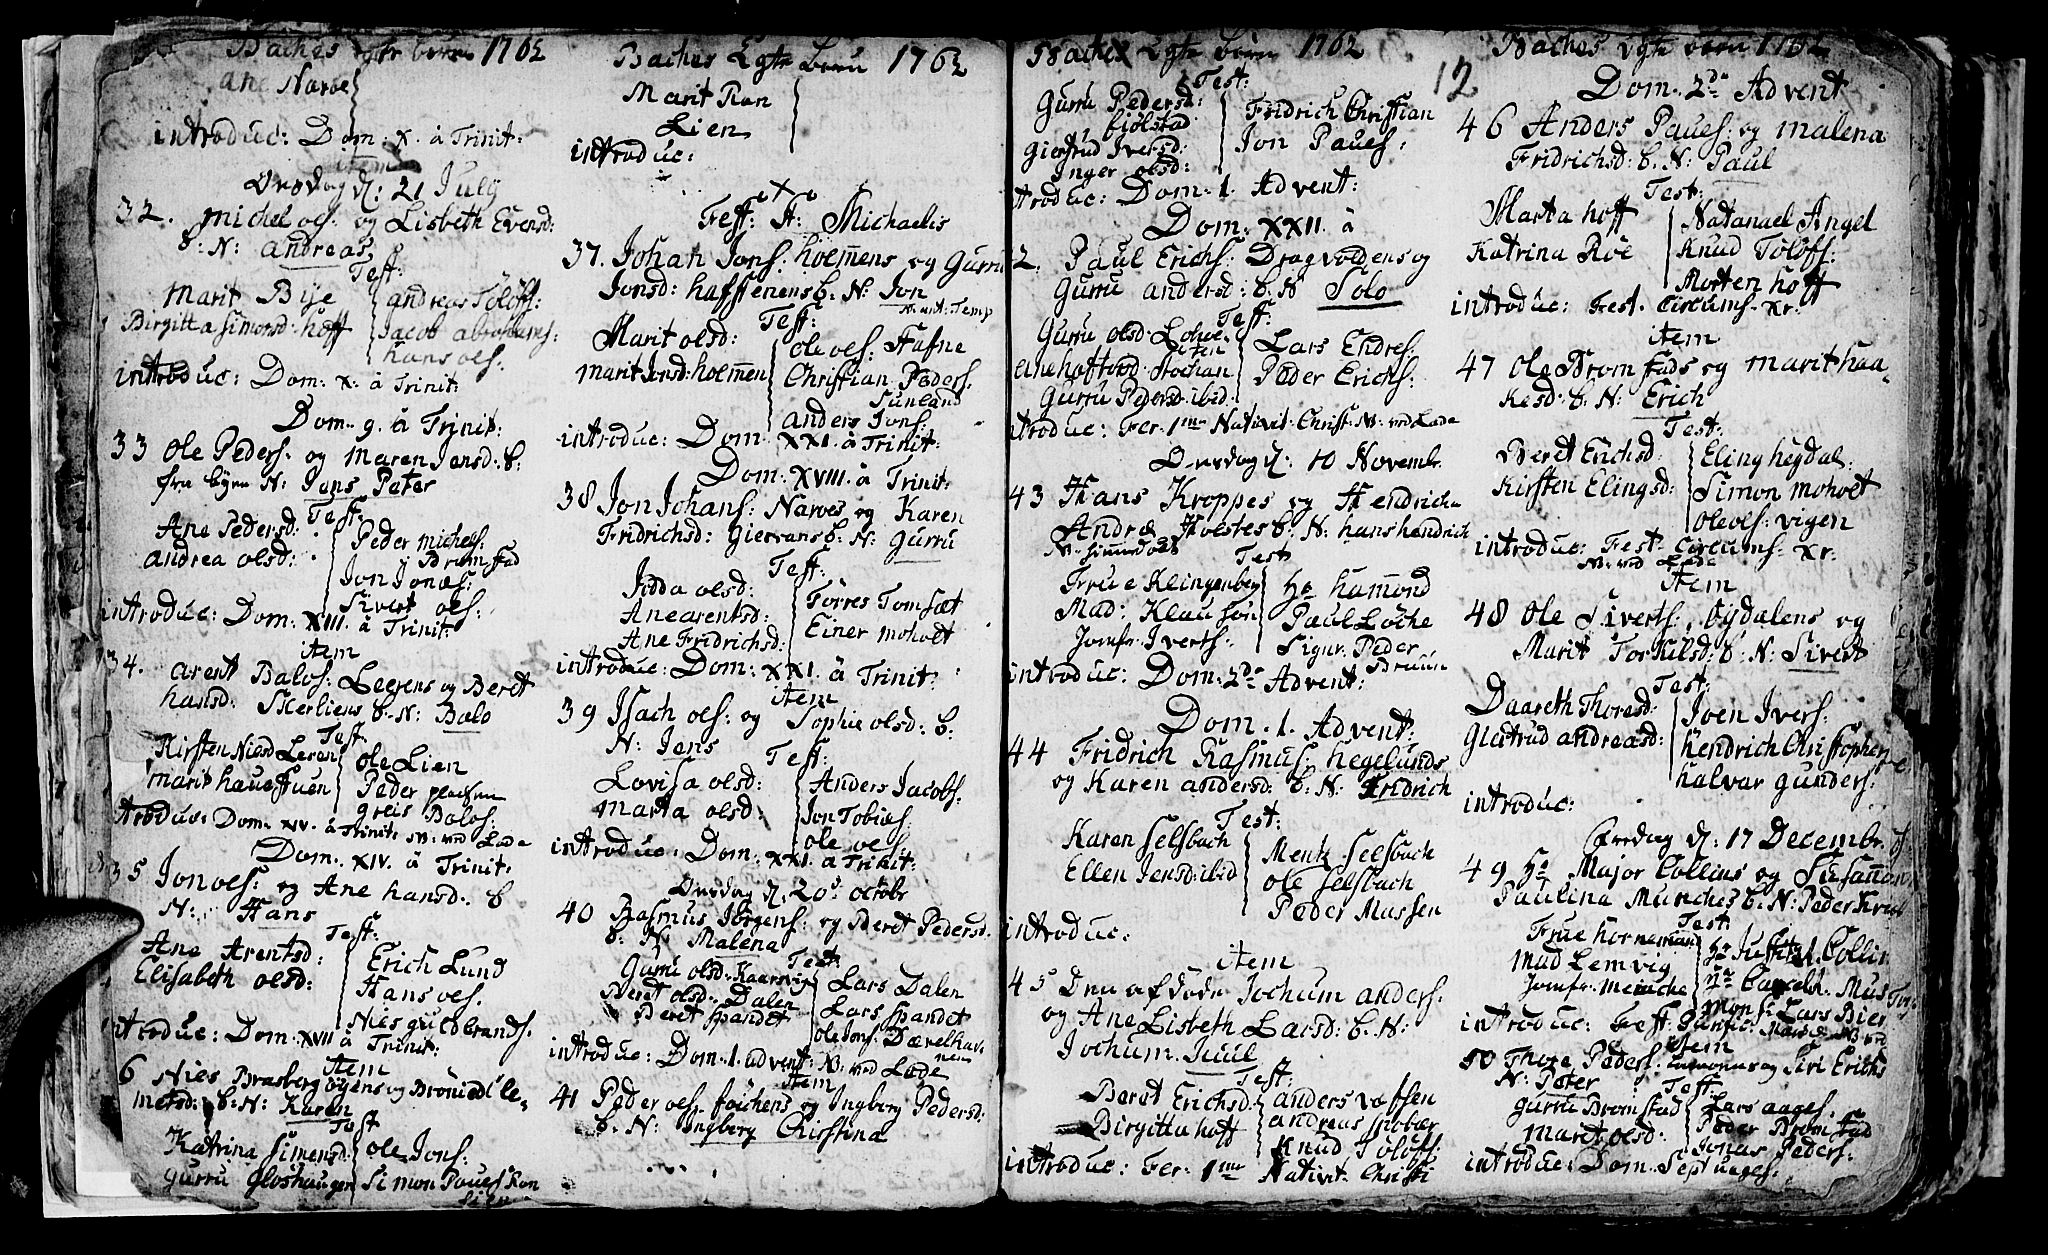 Baches Egte børn 1762
Ane Narvel
introduc: Dom. X. à Trinit:
item
Onsdag d: 21 July
32. Michel ols: og Lisbeth Evensd:
b: N: Andreas
Test:
Marit Bye
Birgitta Simonsd. Hoff
Andreas Toloffs:
Jacob Abrahams:
Hans ols:
introduc: Dom: X. à Trinit:
Dom. 9. à Trinit:
33 Ole Peders: og Maren Jensd: b:
fra byen N: Jens Peter
Test:
Ane Pedersd:
Andrea olsd:
Peder Michels:
Bromstad
Jon Jonas:
Sivert ols:
introduc: Dom. XIII. à Trinit:
item
34. Arent Balos: Leerens og Beret
Hansd: b: N: Balo
Test
Kirsten Nielsd Leren
Marit Haugstuen
Ole Lien
Peder
Greis Balos:
troduc: Dom. XIV. à Trinit: N: ved Lade
Dom. XIV. à Trinit:
35 Jon ols: og Ane Hansd: b
N: Hans
Test:
Ane Arentsd:
Elisabeth olsd:
Erich Lund
Hans ols.
Niels Guldbrands.
introduc: Dom. XVII à Trinit:
item
6 Niels Brasberg
b: N: Karen
Test
Katrina Simensd:
Gurru Gloshaugen
Ole Jons:
Simon Pauels: Ron
Lien
Baches Egte børn 1762
Marit Ran
Lien
introduc:
Fest: St: Michaelis
37. Johan Jons: Holmens og Gurru
Jonsd: Haffstenens b. N: Jon
Test:
Marit olsd:
Marit Jensd: Holmen
Ole ols: Stafne
Christian Peders:
Sunland
Anders Jons:
introduc: Dom. XXI. à Trinit:
Dom. XVIII. à Trinit:
38 Jon Johans: Narves og Karen
Fridrichsd: Gierrans b. N: Gurru
Test:
Jdda olsd:
Ane Arentsd:
Ane Fridrichsd:
Torres Tomset
Einer Moholt
introduc: Dom. XXI. à Trinit:
item
39 Isach ols: og Sophie olsd: b:
N: Jens
Test:
Lovisa olsd:
Marta olsd:
Anders Jacobs:
Jon Tobias:
Ole ols:
introduc: Dom. XXI. à Trinit:
Onsdag d. 20de octobr
40 Rasmus Jörgens: og Beret Pedersd.
b. N: Malena
Test:
Gurru olsd: Kaarsvig
Beret olsd: Dalen
Beret Spandet
Lars Dalen
Lars Spandet
Ole Jons: Dævelhav-
nen
introduc: Dom. 1. advent: N: ved Lade
item
41 Peder ols. og Ingberg Pedersd:
b. N: Ingberg Christina
Baches Egte børn 1762
Test:
Gurru Pedersd:
Giölstad
Giertrud Iversd:
Inger olsd:
Fridrich Christian
Jon Pauels:
troduc: Dom. 1. Advent:
Dom. XXII. à
2. Paul Erichs: Dragvoldens og
Gurru Andersd: b. N Solo
Test:
Gurru olsd: Lohve
Lien
Ane Hoftvod Stochan
Gurru Pedersd: ibid.
Lars Endres:
Peder Erichs:
troduc: Fer: 1me Nativit: Christ: N: ved Lade
Onsdag d: 10 Novembr.
43 Hans Kroppes og Hendricha
Andrea Holstes b. N: Hans Hendrich
Test
Frue Klingenberg
Mad: Klauson
Jomfr: Iverts:
Hr Hammond
Paul Löche
Signr. Peder
Bruun
introduc: Dom. 2da Advent:
Dom. 1. Advent:
44 Fridrich Rasmus: Hegelunds
og Karen Andersd: b. N: Fridrich
Test:
Karen Selsbach
Ellen Jensd: ibid
Mentz Selsbach
Ole Selsbach
Peder Mussen
introduc:
item
45 Den afdøde Jochum Anders:
og Ane Lisbeth Larsd: b. N:
Jochum Juul
Test:
Beret Erichsd.
Birgitta Hoff
Anders Vossen
Andreas
Knud Toloffs:
introduc: Fer: 1me Nativit: Christi
Baches Egte børn 1762
12
Dom. 2da Advent
46 Anders Pauels: og Malena
Fridrichsd: b. N: Paul
Test:
Marta Hoff
Katrina Roe
Natanael Angel
Knud Toloffs:
Morten Hoff
introduc: Fest. Circums. Xr.
item
47 Ole Bromstads og Marit Haa-
kesd: b. N: Erich
Test:
Beret Erichsd:
Kirsten Elingsd:
Eling Heydal:
Simon Moholt
Ole ols: Vigen
introduc: Fest. Circums: Xr.
N: ved Lade
item
48 Ole Siverts: Bydalens og
Marit Torkilsd: b. N: Sivert
Test:
Daareth Thoresd:
Giertrud Andreasd:
Joen Ivers:
Hendrich Christophers:
Halvar Gunders:
introduc:
Fredag d: 17 Decembr.
49 Hr Major Collins og Susanna
Paulina Munches b. N: Peder
Test
Frue Hornemand
Mad Lemvig
Jomfr. Meinche
Hr Justitz. Collin
Mons: Lars Bier
introduc: Fest: Purific: Mariæ
item
50 Thore Peders: og Siri Erichs
N: Peter
Test.
Gurru Bromstad
Marit olsd:
Lars Aages.
Peder Bromstad
Jonas Peders:
introduc: Dom. Septuages: